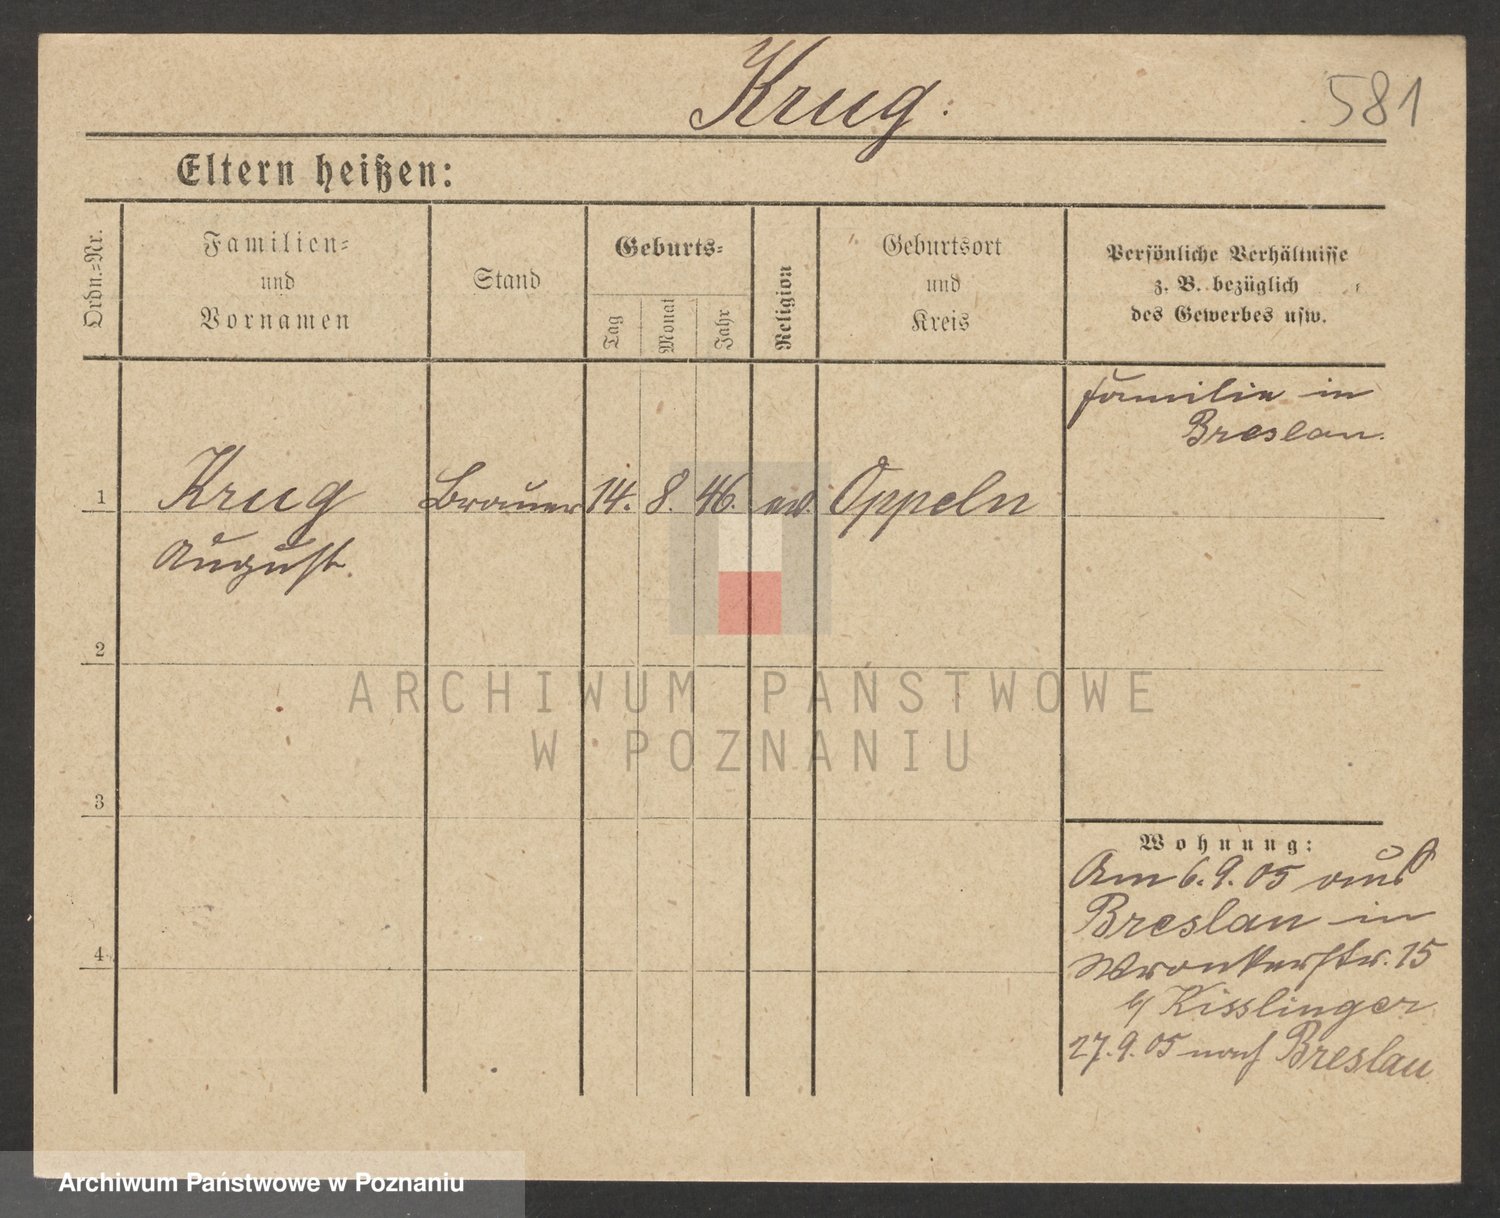 Krug.
581
Eltern heißen:
Ordn.-Nr.
Familien-
und
Vornamen
Stand
Geburts-
Tag
Monat
Jahr
Religion
Geburtsort
und
Kreis
Persönliche Verhältnisse
z. B. bezüglich
des Gewerbes usw.
Familie in
Breslau.
1
Krug
Brauer
14.
8.
46.
ev.
Oppeln
August.
2
ARCHIWUM PAŃSTWOWE
W POZNANIU
3
Wohnung:
Am 6.9.05 aus
Breslau in
Wronkerstr. 15
b/ Kisslinger
27.9.05 nach Breslau
4
Archiwum Państwowe w Poznaniu